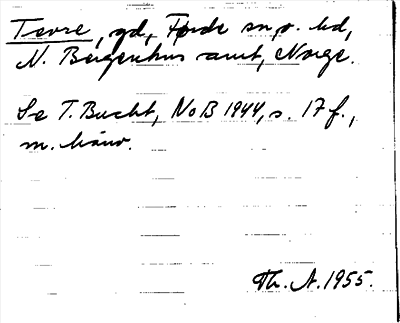 Tevre, gd, Førde sn o. hd,
N. Bergenhus amt, Norge.
Se T. Bucht, NoB 1944, s. 17 f.,
m. hänv.
Th. A. 1955.